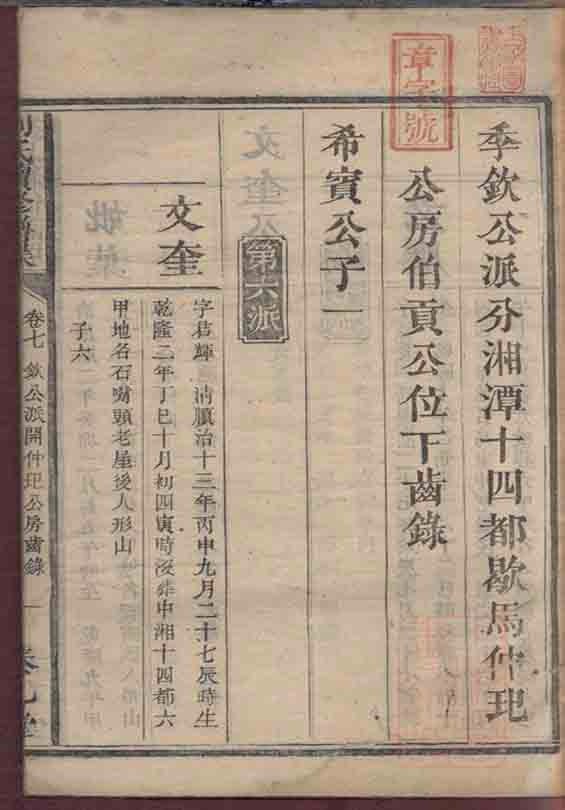 季欽公派分湘潭十四都歇馬仲玘
公房伯貢公位下齒錄
章字號
希賓公子一
第六派
文奎
字 輝 清順治十三年丙申九月二十七辰時生
乾隆二年丁巳十月初四寅時沒葬中湘十四都六
甲地名石 頭老屋後人形山
子六
卷七 欽公派開仲玘公房齒錄 一